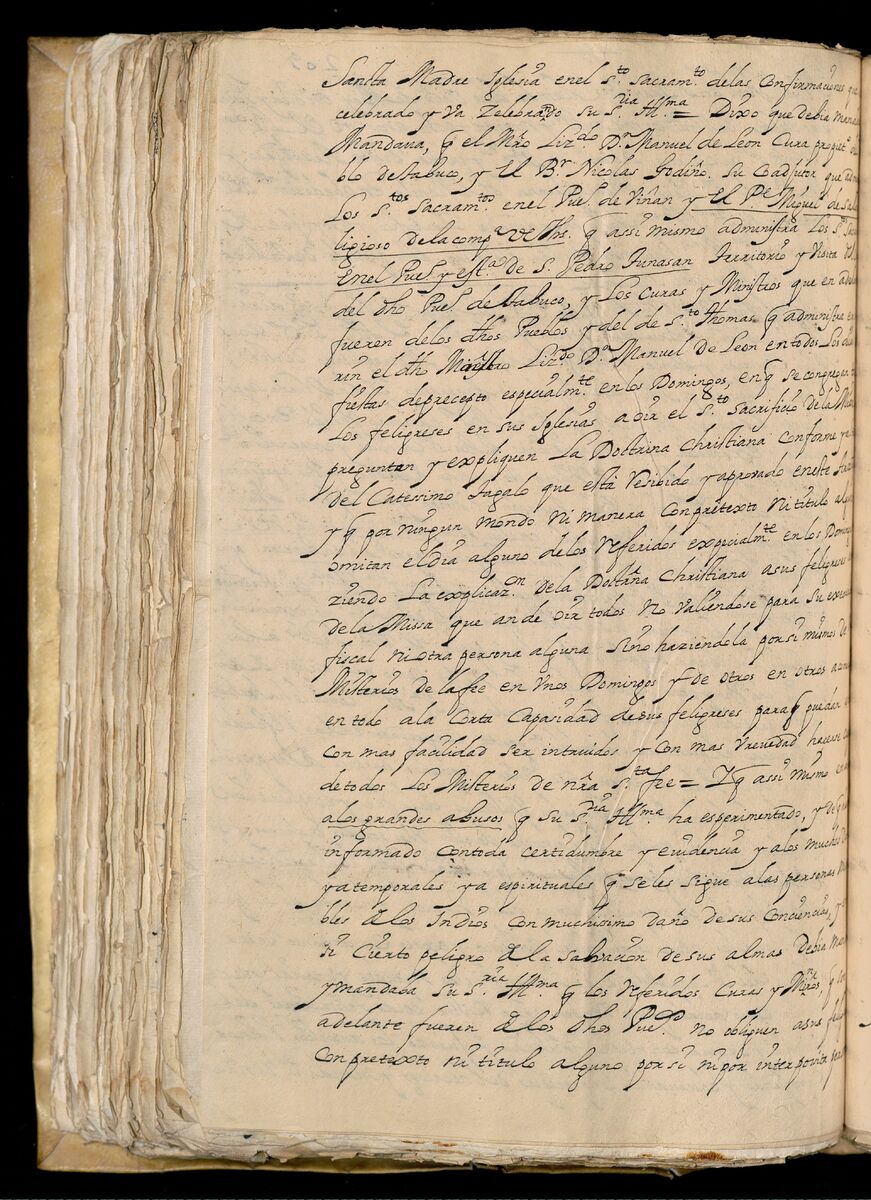 Sancta Madre Iglesia enel s.to sacram.to delas Confirmaciones que
celebrado y va zelebrando su s.ria Ill.ma = Dixo que debia
Mandava, q el Mro Liz.do D.n Manuel de Leon Cura propiet.o
blo de tabuco, y el B.r Nicolas Godiño. su Coadjutor que
Los S.tos Sacram.tos enel Pue.o de Viñan y El P.e Miguel de
ligioso de la comp.a de Jhs. q assi mismo administra Los S.s
Enel Pue.o y est.a de S. Pedro Tunasan Territorio y Visita
del dho Pue.o de tabuco, y Los Curas y Ministros que en
fueren delos dhos Pueblos y del de s.to thomas q administra
rin el dho Ministro Liz.do D.n Manuel de Leon en todos Los dias
fiestas de precepto especialm.te en los Domingos, en q se congregan
Los feligreses en sus Iglesias a oir el s.to sacrificio de la
preguntan y expliquen La Doctrina Christiana conforme
del Catessimo tagalo que està Resibido y aprovado en este
y q por ningun mondo ni manera Con pretexto ni titulo
omitan el dia alguno de los Referidos expecialm.te en los
ziendo La explicaz.on de la Doctña Christiana a sus feligreses
de la Missa que an de oir todos No valiendose para su
fiscal ni otra persona alguna sino haziendola por si mismos de
Misterios de la fee en Vnos Domingos y de otros en otros
en todo a la Corta Capasidad de sus feligreses para q puedan
con mas facilidad ser intruidos y con mas brevedad hacerse
de todos Los Misterios de nra s.ta fee = Y q assi mismo
a los grandes abusos q su s.ria Ill.ma ha esperimentado, y de
informado con toda certidumbre y evidencia y a los muchos
ya temporales ya espirituales q se les sigue a las personas
bles de los Indios con muchissimo daño de sus conciencias,
si Cierto peligro de la salvacion de sus almas Debia
y mandaba su s.ria Ill.ma q los Referidos Curas y Mros,
adelante fueren de los dhos Pue.s no obliguen a sus
con pretexto ni titulo alguno por si ni por interposita